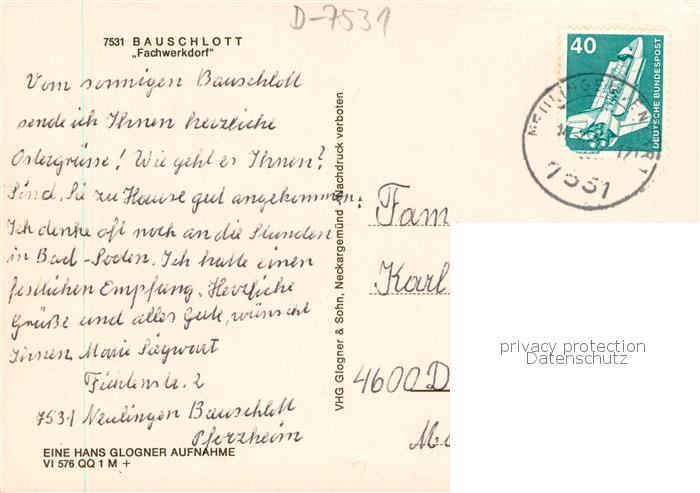 D-7531
7531 BAUSCHLOTT
„Fachwerkdorf"
Vom sonnigen Bauschlott
sende ich Ihnen herzliche
Ostergrüsse! Wie geht es Ihnen?
Sind Sie zu Hause gut angekommen.
Ich denke oft noch an die Stunden
in Bad-Soden. Ich hatte einen
festlichen Empfang. Herzliche
Grüße und alles Gute, wünscht
Ihnen Marie Siegwart
Fichtenstr. 2
7531 Neulingen Bauschlott
Pforzheim
EINE HANS GLOGNER AUFNAHME
VI 576 QQ 1 M +
VHG Glogner & Sohn, Neckargemünd · Nachdruck verboten
40
DEUTSCHE BUNDESPOST
NEULINGEN
7531
Fam
Karl
4600 D
privacy protection
Datenschutz